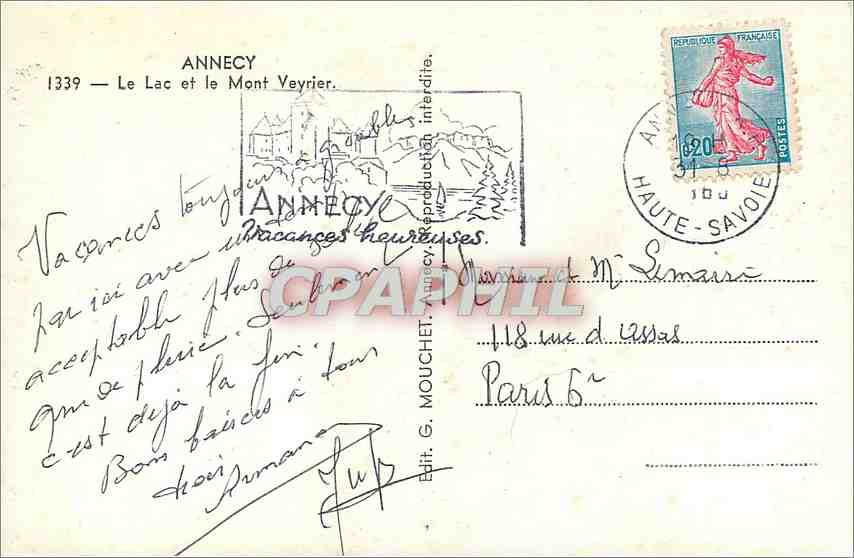 ANNECY
1339 — Le Lac et le Mont Veyrier.
ANNECY
Vacances heureuses.
Vacances toujours agréables
par ici avec un temps
acceptable plus de
que de pluie. Seulement
c'est déjà la fin.
Bons baisers à tous
trois
Armand
Edit. G. MOUCHET. Annecy. Reproduction interdite.
REPUBLIQUE FRANÇAISE
0,20
POSTES
HAUTE-SAVOIE
31 8
Monsieur et Me Lemaire
118 rue d'assas
Paris 6e
CPAPHIL